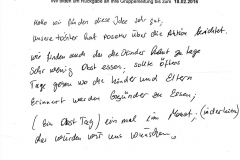 Wir bitten um Rückgabe an Ihre Gruppenleitung bis zum 18.02.2016
Hallo wir finden diese Idee sehr gut,
unsere tochter hat positiv über die Aktion berichtet.
wir finden auch das die Kinder heut zu tage
sehr wenig Obst essen. sollte öfters
Tage geben wo die kinder und Eltern
Erinnert werden Gesünder zu Essen,
( Ein Obst Tag ) ein mal im Monat,
das würden wir uns wünschen.